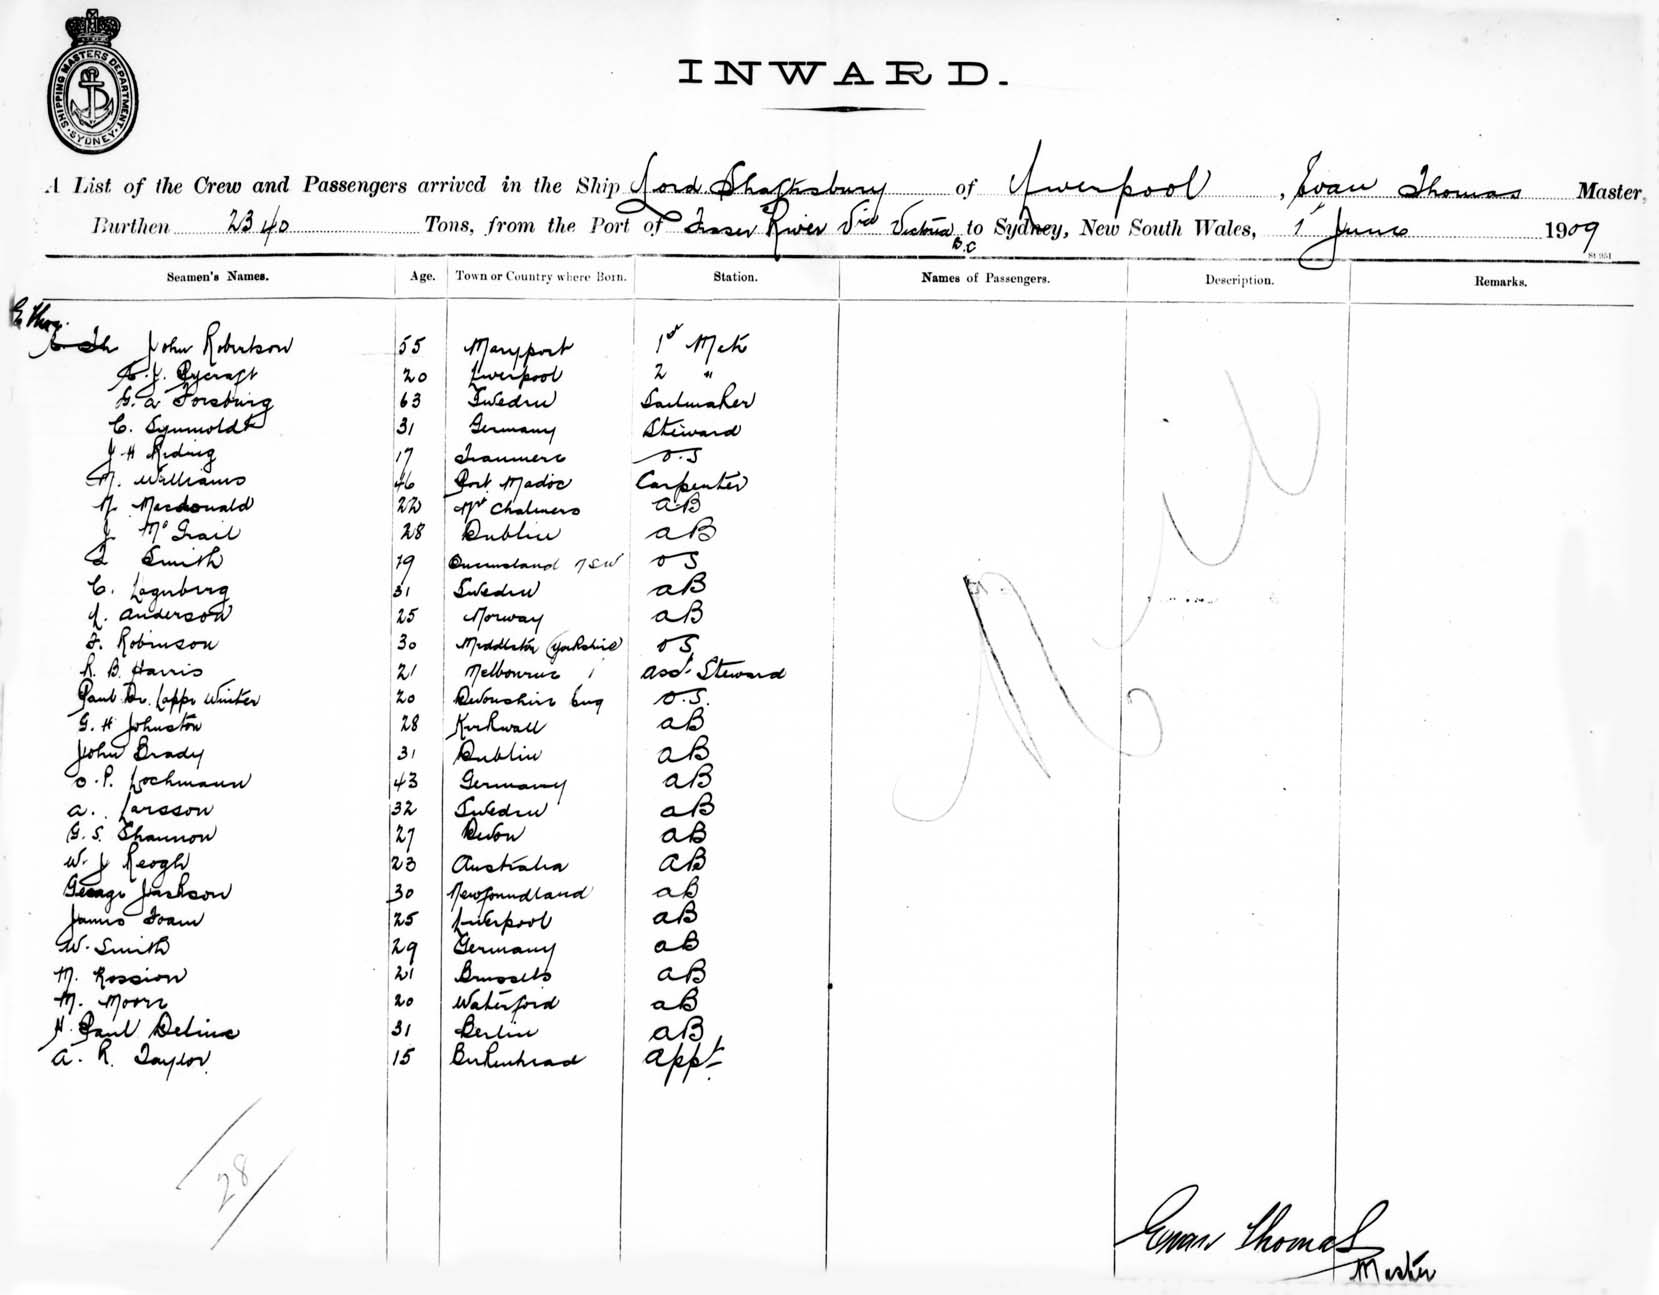 SHIPPING MASTERS DEPARTMENT · SYDNEY ·
INWARD.
A List of the Crew and Passengers arrived in the Ship Lord Shaftsbury of Liverpool, Evan Thomas Master,
Burthen 2340 Tons, from the Port of Fraser River Via Victoria B.C to Sydney, New South Wales, 1st June 1909
Seamen's Names. Age. Town or Country where Born. Station. Names of Passengers. Description. Remarks.
John Robertson 55 Maryport 1st Mate
Pycraft 20 Liverpool 2 "
G. a Forsburg 63 Sweden Sailmaker
C. 31 Germany Steward
J H Riding 17 Tranmere O.S
M. Williams 46 Port Madoc Carpenter
N. Macdonald 22 Pt Chalmers aB
J McGrail 28 Dublin aB
Smith 19 Queensland NSW OS
C. Lagerberg 31 Sweden aB
A. Anderson 25 Norway aB
F. Robinson 30 Middleton (Yorkshire) OS
R. B. Harris 21 Melbourne asst Steward
Paul Winter 20 Devonshire Eng O.S.
G. H Johnston 28 Kirkwall aB
John Brady 31 Dublin aB
O. P. Lochmann 43 Germany aB
a. Larsson 32 Sweden aB
G. S. Shannon 27 Devon aB
W. J Keogh 23 Australia AB
George Jackson 30 Newfoundland aB
James 25 Liverpool aB
W. Smith 29 Germany aB
M. Rossion 21 Brussels aB
M. Moore 20 Waterford aB
H. Paul 31 Berlin aB
a. R. Taylor 15 Birkenhead appt
Nil
28
Evan Thomas
Master